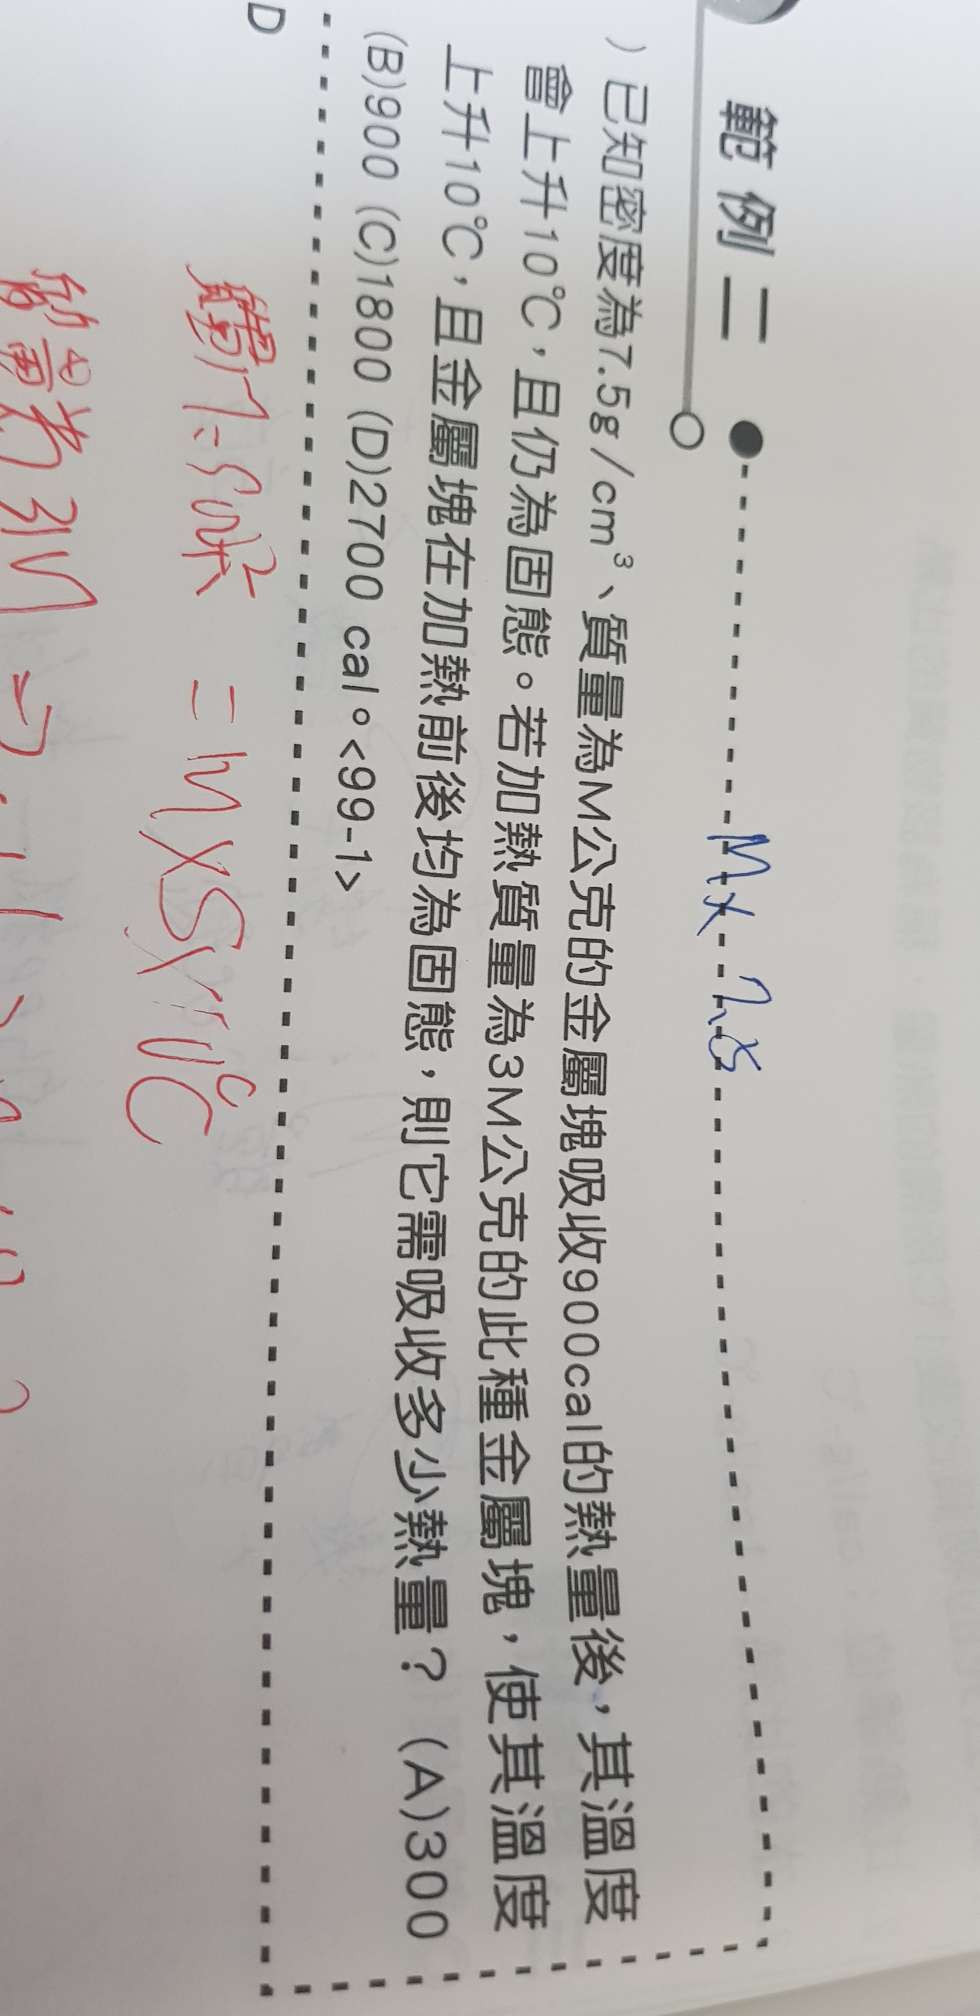 範例二
M× 7.5
)已知密度為7.5g/cm³、質量為M公克的金屬塊吸收900cal的熱量後，其溫度
會上升10℃，且仍為固態。若加熱質量為3M公克的此種金屬塊，使其溫度
上升10℃，且金屬塊在加熱前後均為固態，則它需吸收多少熱量？ (A)300
(B)900 (C)1800 (D)2700 cal。<99-1>
D
= M×S×10℃
當 為3M